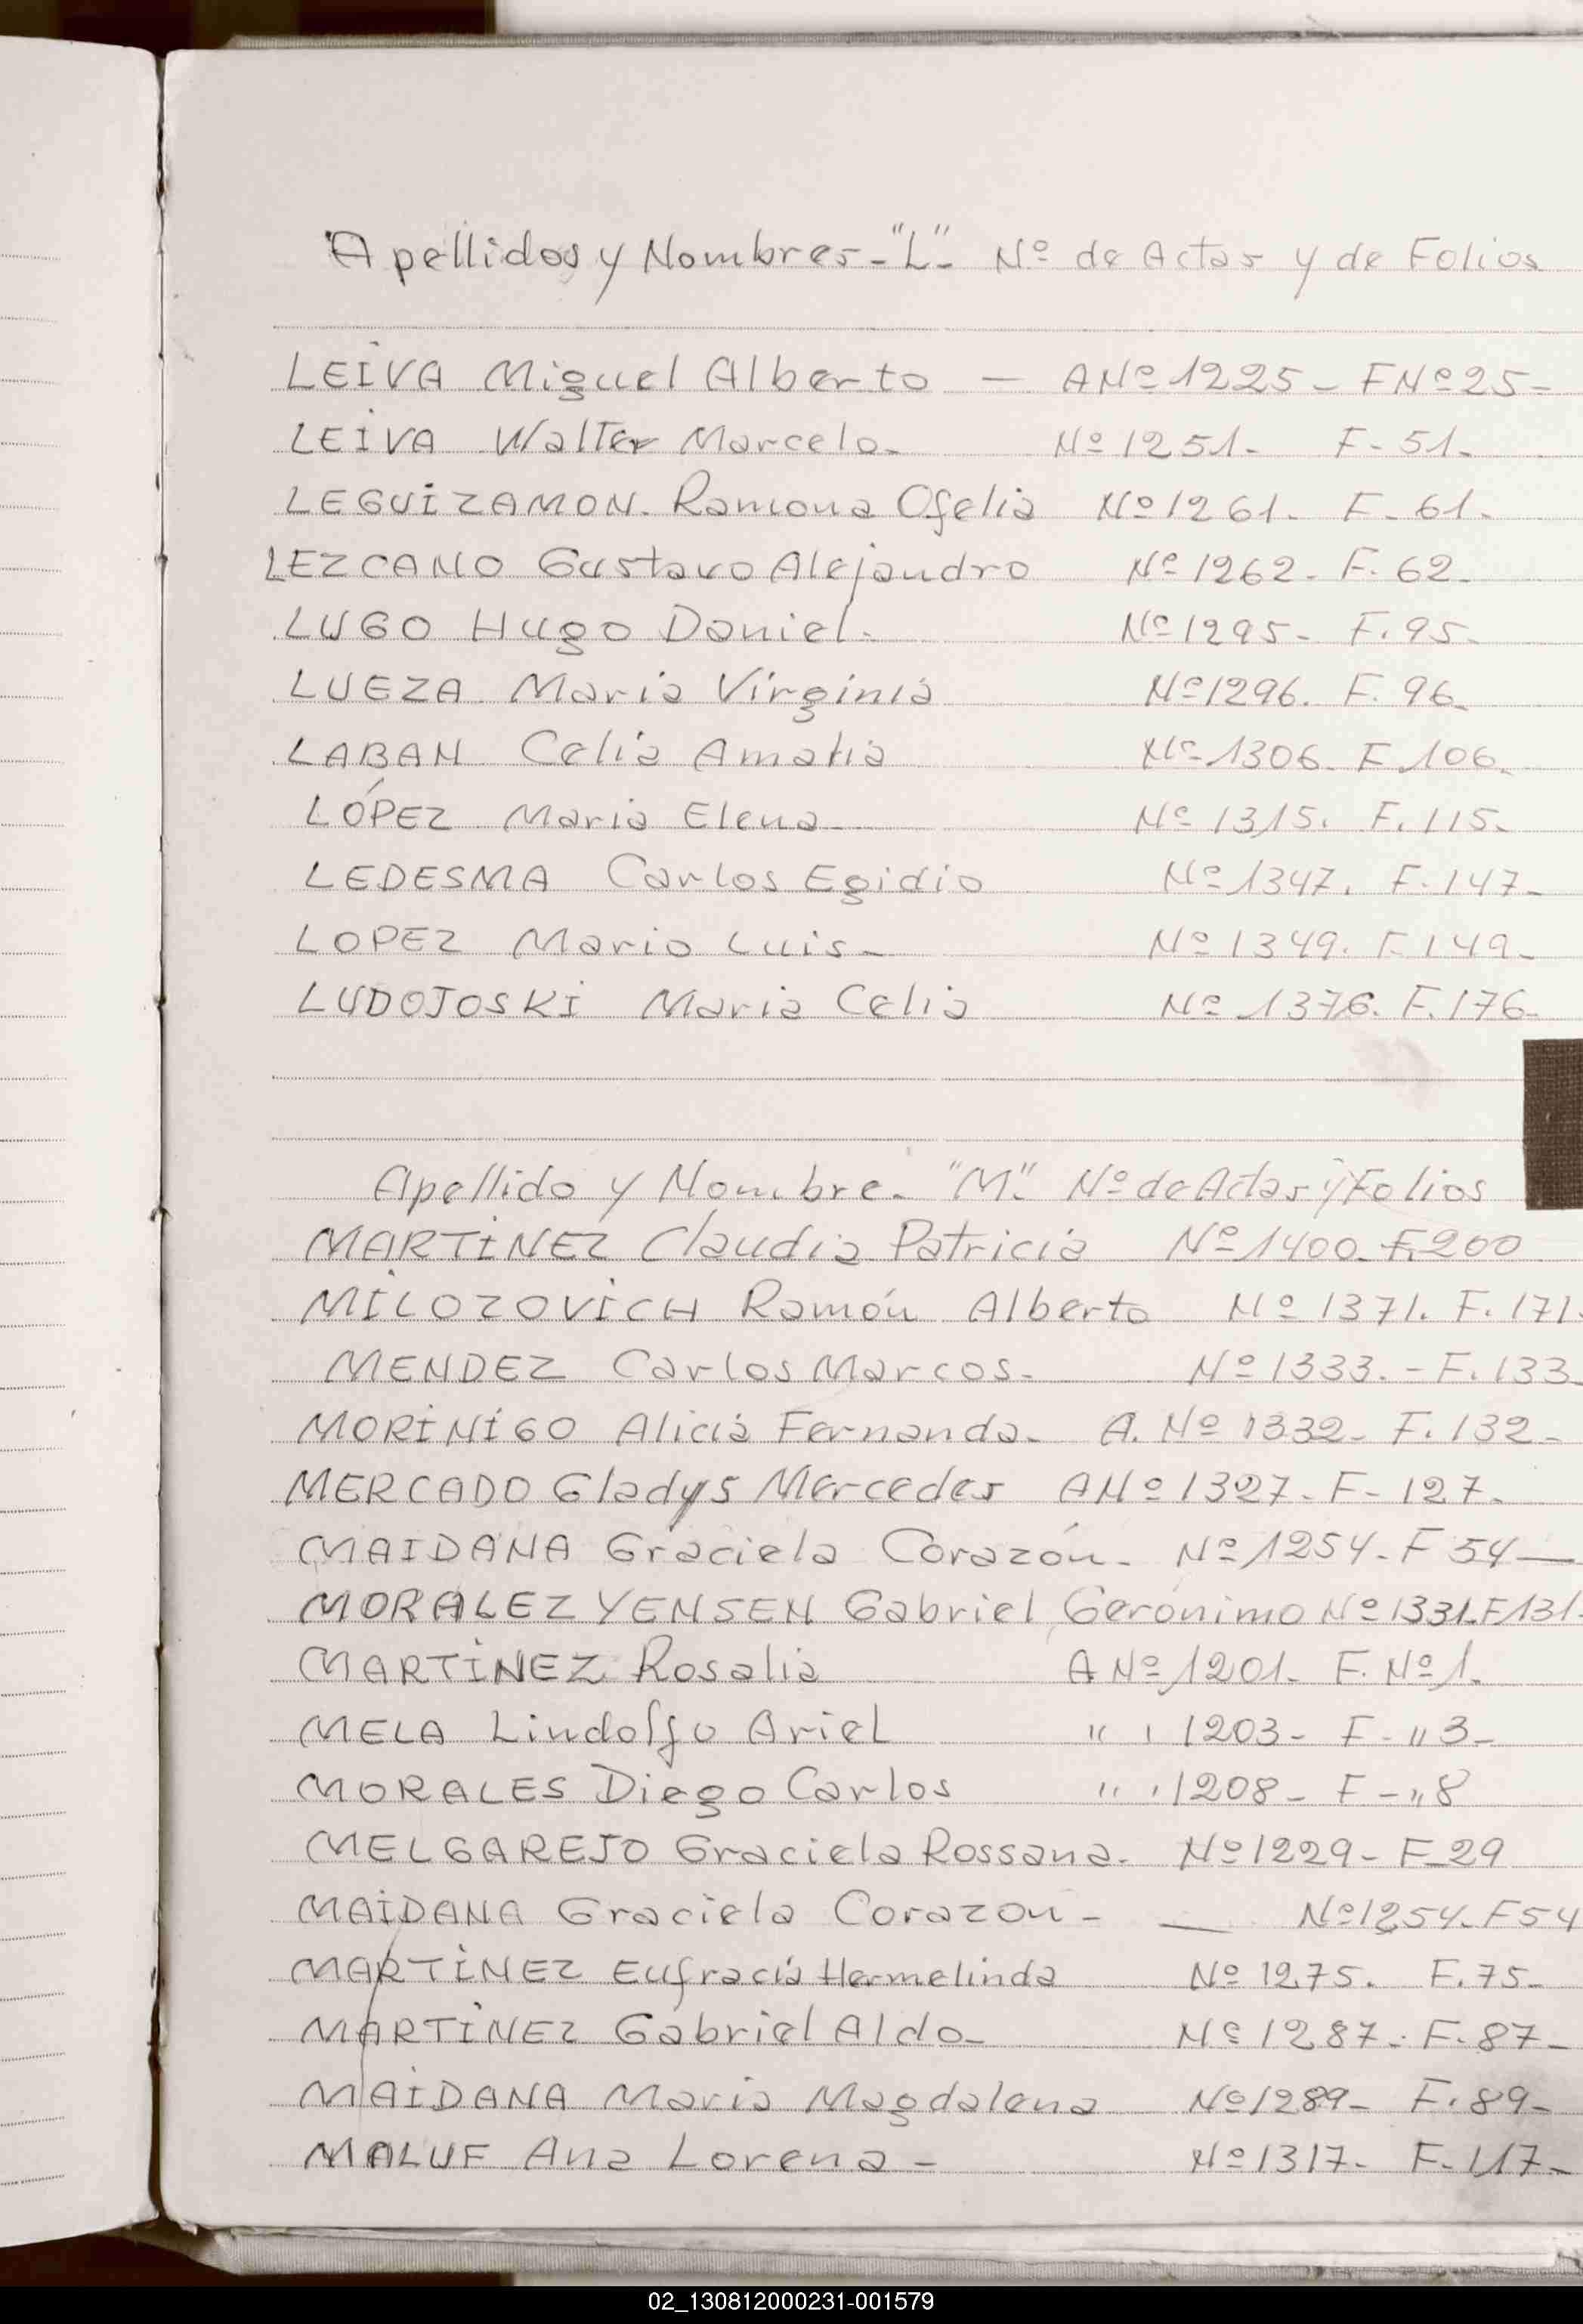 Apellidos y Nombres - "L" - Nº de Actas y de Folios
LEIVA Miguel Alberto — A Nº 1225 - F Nº 25 -
LEIVA Walter Marcelo - Nº 1251. F - 51.
LEGUIZAMON. Ramona Ofelia Nº 1261. F - 61.
LEZCANO Gustavo Alejandro Nº 1262. F. 62.
LUGO Hugo Daniel. Nº 1295 - F. 95.
LUEZA Maria Virginia Nº 1296. F. 96.
LABAN Celia Amatia Nº 1306. F. 106.
LÓPEZ Maria Elena Nº 1315. F. 115.
LEDESMA Carlos Egidio Nº 1347. F. 147 -
LOPEZ Mario Luis - Nº 1349. F. 149 -
LUDOJOSKI Maria Celia Nº 1376. F. 176 -
Apellido y Nombre. "M". Nº de Actas y Folios
MARTINEZ Claudia Patricia Nº 1400. F. 200
MILOZOVICH Ramón Alberto Nº 1371. F. 171.
MENDEZ Carlos Marcos. Nº 1333. - F. 133.
MORINIGO Alicia Fernanda - A. Nº 1332 - F. 132 -
MERCADO Gladys Mercedes A Nº 1327 - F - 127.
MAIDANA Graciela Corazón - Nº 1254 - F 54 —
MORALEZ YENSEN Gabriel Gerónimo Nº 1331. F 131.
MARTINEZ Rosalia A Nº 1201 - F. Nº 1.
MELA Lindolfo Ariel " ' 1203 - F - " 3 -
MORALES Diego Carlos " ' 1208 - F - " 8
MELGAREJO Graciela Rossana. Nº 1229 - F - 29
MAIDANA Graciela Corazon - — Nº 1254. F 54
MARTINEZ Eufracia Hermelinda Nº 1275. F. 75 -
MARTINEZ Gabriel Aldo - Nº 1287 - F. 87 -
MAIDANA Maria Magdalena Nº 1289 - F. 89 -
MALUF Ana Lorena - Nº 1317 - F. 117 -
02_130812000231-001579